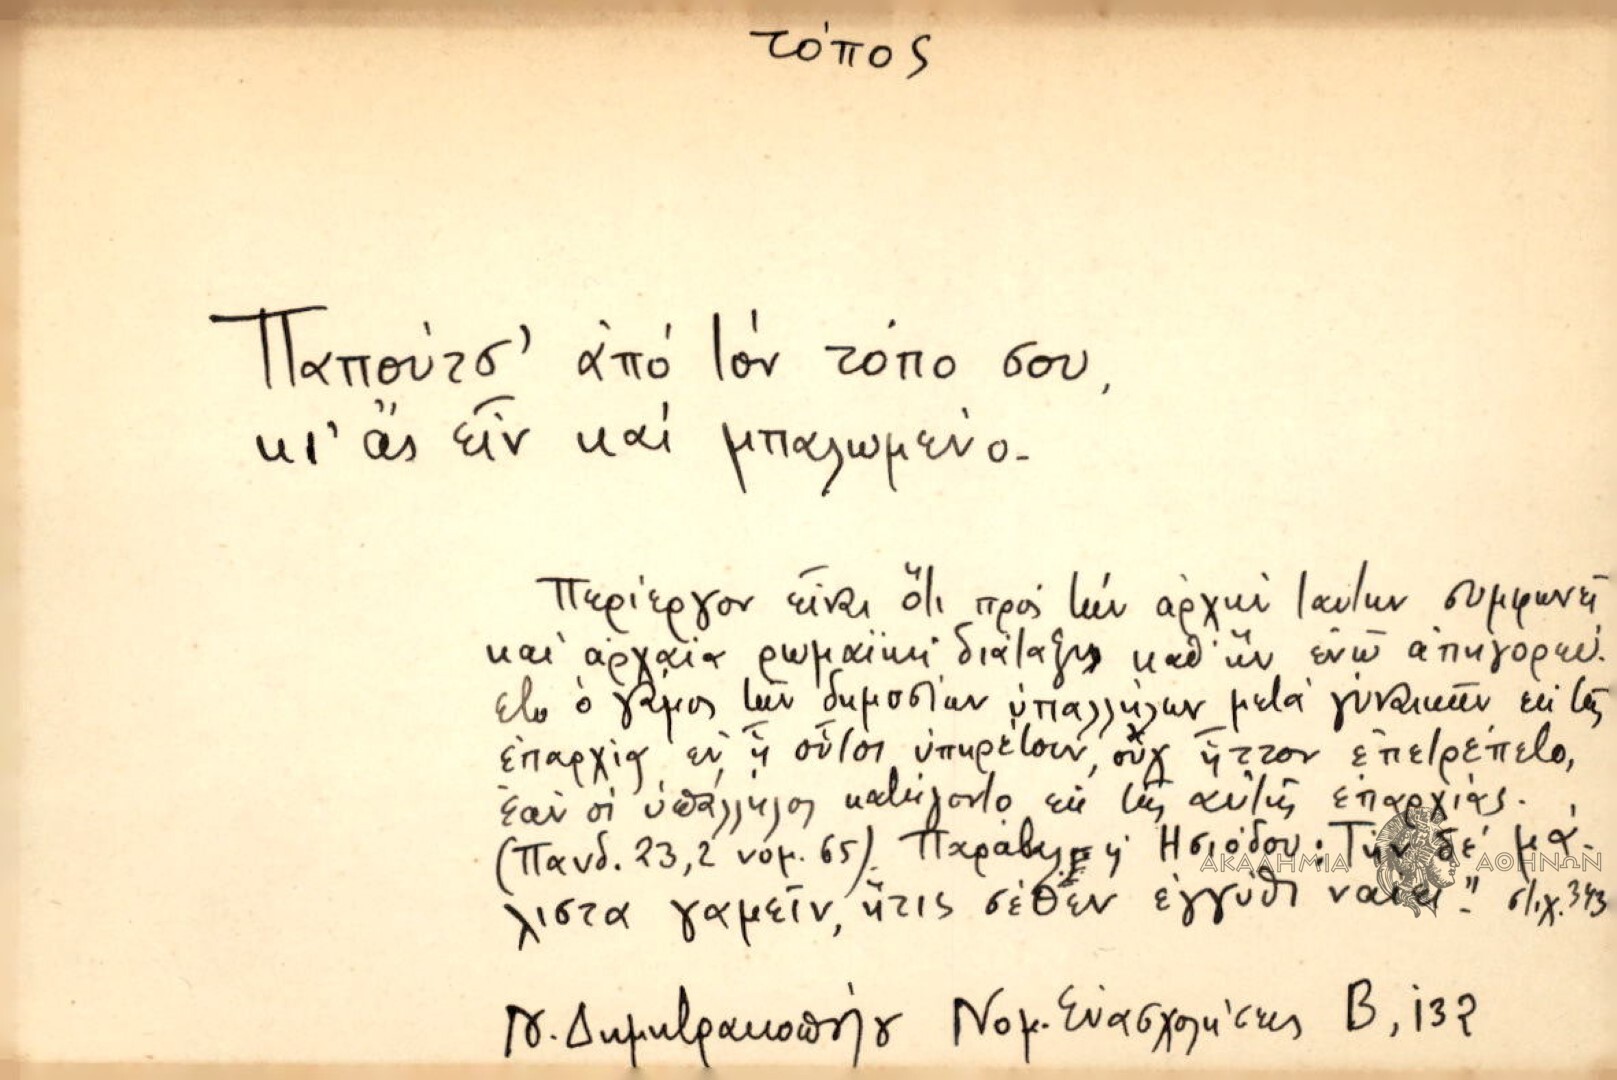 τόπος
Παπούτσ' ἀπό τόν τόπο σου,
κι' ἄς εἶν καί μπαλωμένο.
Περίεργον εἶναι ὅτι πρός τήν ἀρχήν ταύτην συμφωνεῖ
καί ἀρχαία ρωμαϊκή διάταξις καθ' ἥν ἐνῶ ἀπηγορεύ-
ετο ὁ γάμος τῶν δημοσίων ὑπαλλήλων μετά γυναικῶν ἐκ τῆς
ἐπαρχίας ἐν ᾗ οὗτοι ὑπηρέτουν, οὐχ ἧττον ἐπετρέπετο,
ἐάν οἱ ὑπάλληλοι κατήγοντο ἐκ τῆς αὐτῆς ἐπαρχίας.
(Πανδ. 23,2 νόμ. 65). Ἡσιόδου: Τήν δέ μά-
λιστα γαμεῖν, ἥτις σέθεν ἐγγύθι ναίει." στιχ. 343
Ν. Δημητρακοπούλου Νομ. Ἐνασχολήσεις Β, 132
ΑΚΑΔΗΜΙΑ ΑΘΗΝΩΝ